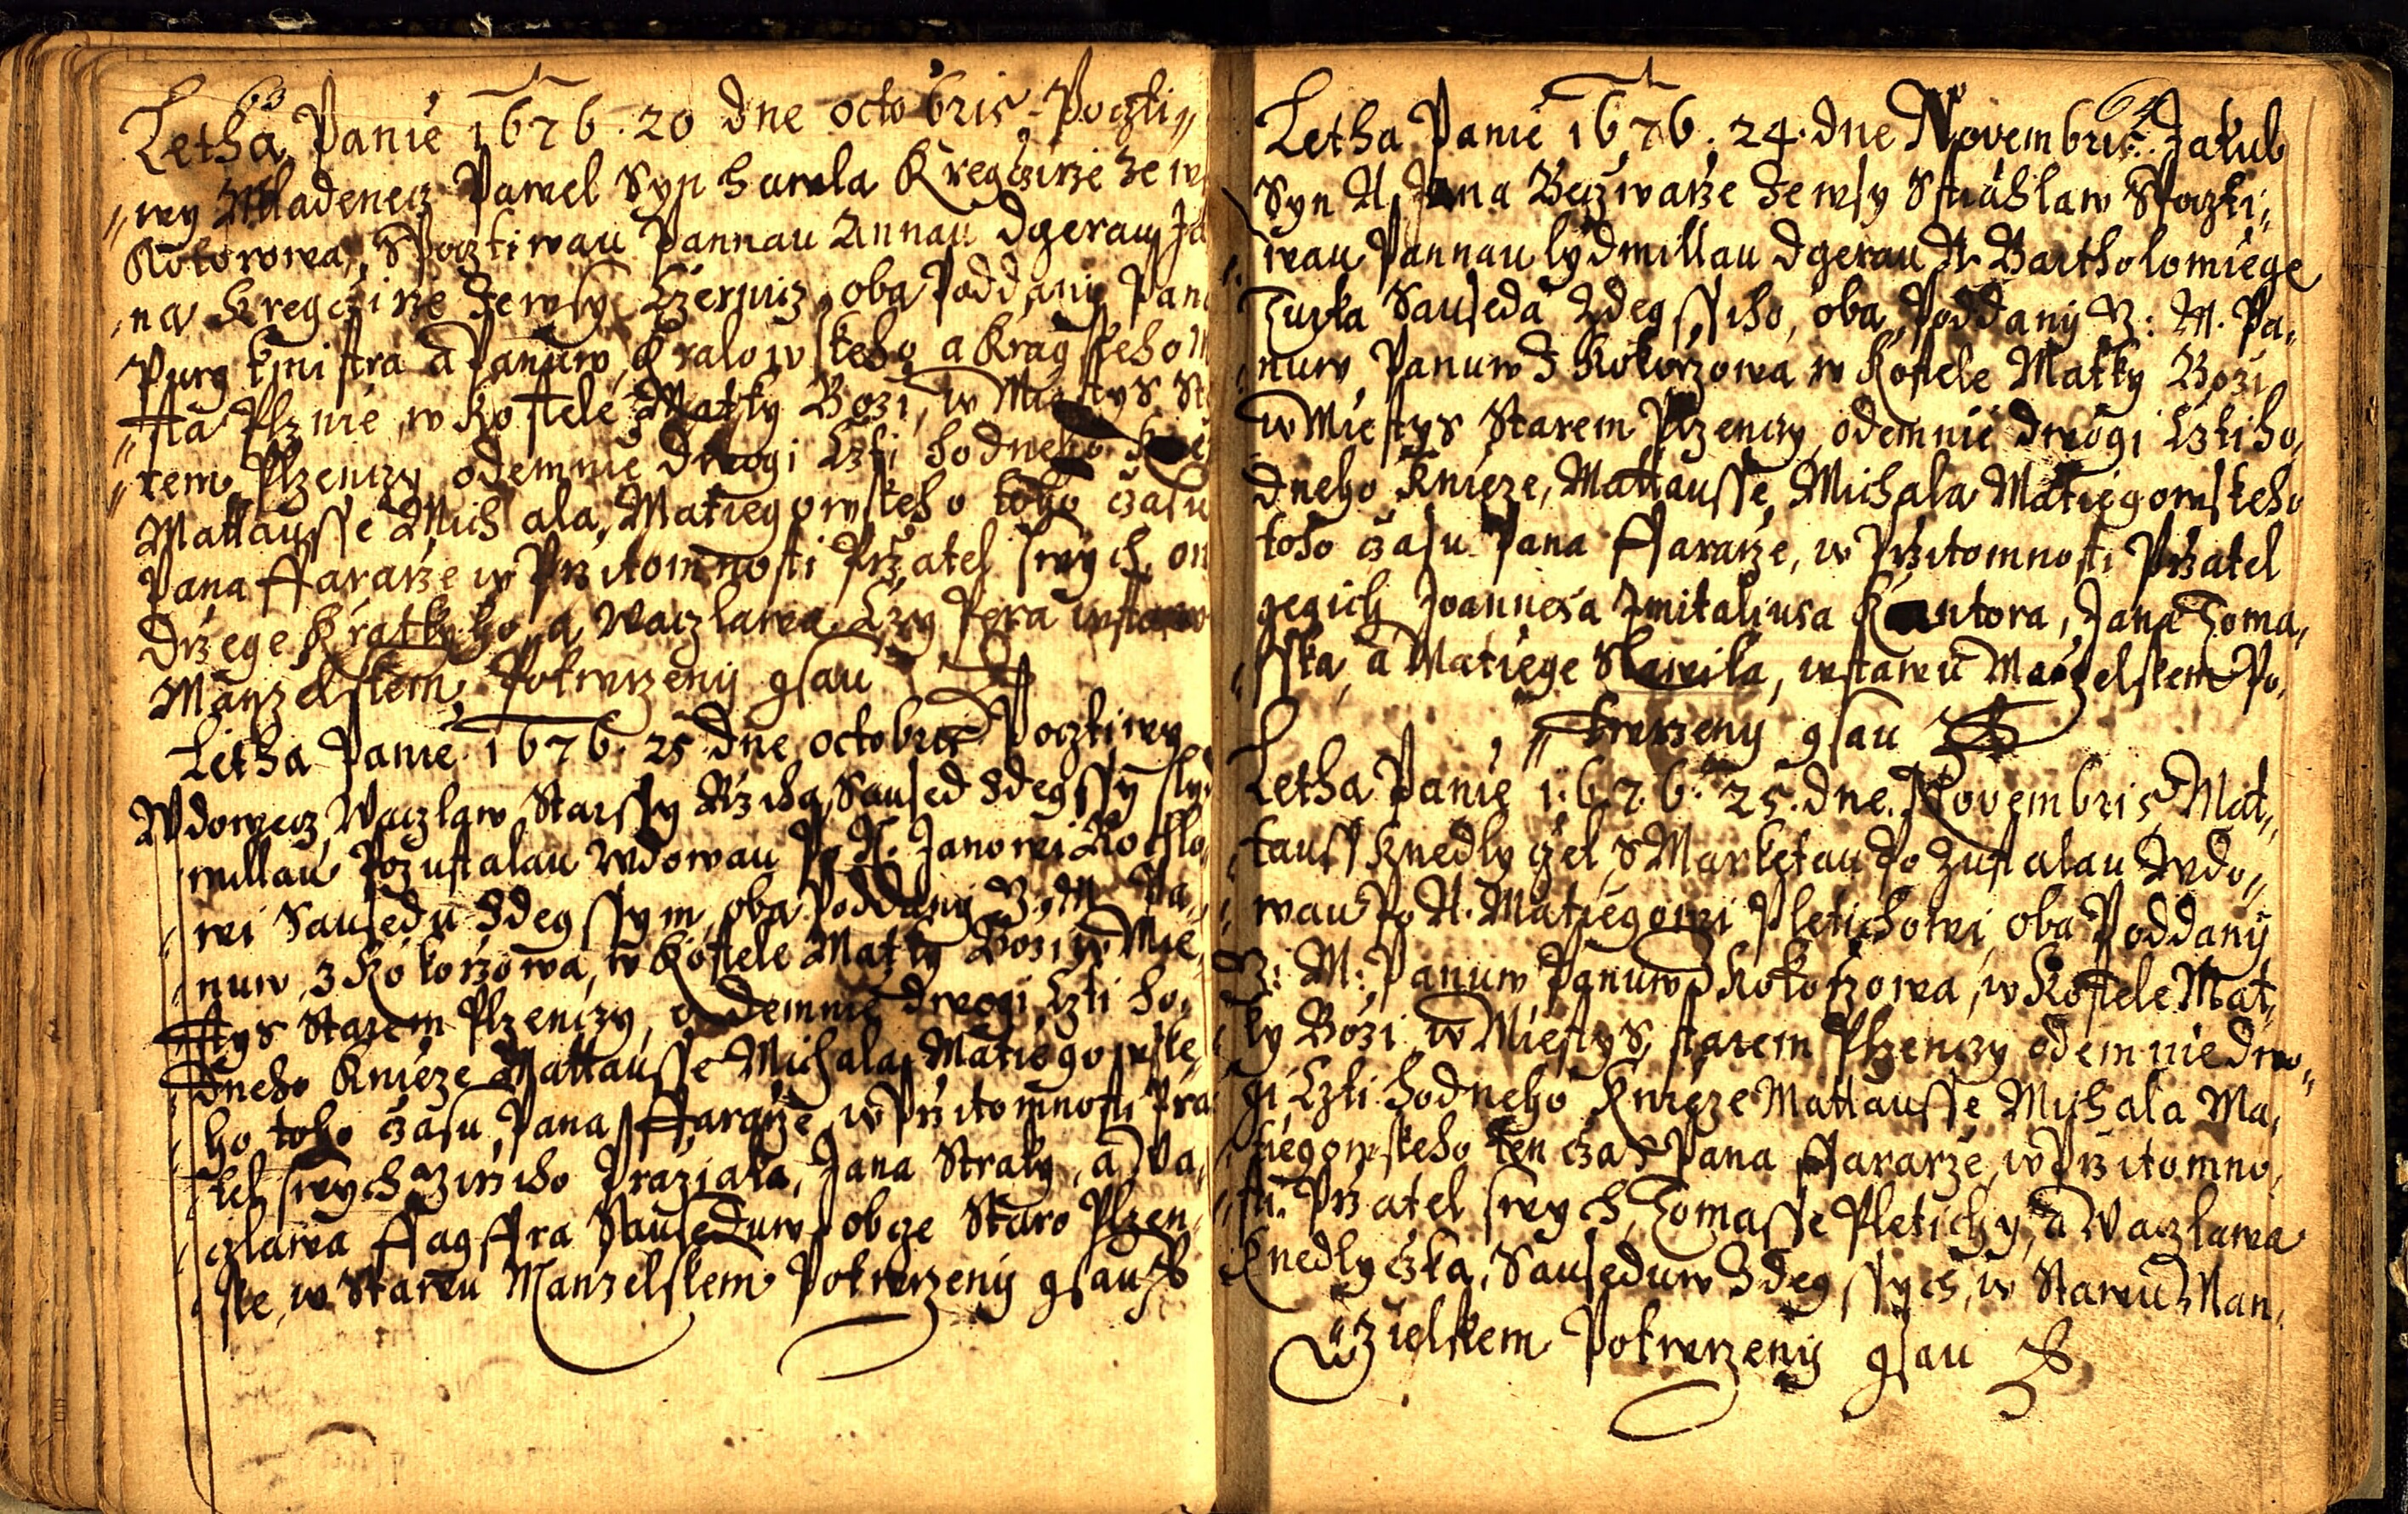 63
Letha Panie 1676. 20 dne octobris, Poczti„
„wy Mladenecz Pawel Syn hawla Kregczirze ze w
Kotorowa, Spocztiwau Pannau Annau dgerau Ja
„na Kregczirze zewsy Czerniz, oba Poddany Pan
Purgkmistra a Panuw Kralowskeho a Kragskeho M
„sta Plznie, w Kostele Matky Bozi, w Miestys St
„rem Plzenczy odemnie dwogi Czti hodneho
Mattausse Michala, Matiegowskeho toho czasu
Pana ffararze w Przitomnosti Przatel swych, on
drzege Kratkyho, a Waczlawa
Manzelskem, Potwrzeny gsau
Letha Panie 1676. 25. dne octobris Pocztiwy
Wdowecz Waczlaw Starssy Rziha, Saused zdegssy s lyd
millau Pozustalau wdowau Po N. Janowi Rochlo„
wi Sausedu zdegssym, oba Poddany U: M. Pa„
nuw, z Kokorzowa, w Kostele Matky Bozi w Mie„
stys Starem Plzenczy, odemnie dwogi Czti ho„
dneho Knieze Mattausse Michala Matiegowske„
ho toho czasu Pana ffararze, w Przitomnosti Prza
tel swych Jirziho Praziaka, Jana Straky, a Wa„
czlawa ffagffra Sauseduw obcze Staro Plzen„
ske, w Stawu Manzelskem Potwrzeny gsau
64
Letha Panie 1676. 24. dne Novembris. Jakub
Syn N. Jana Beczwarze zewsy Stiahlaw Spoczti„
„wau Pannau lydmillau dgerau N. Bartholomiege
Turka Sauseda zdegssiho, oba Poddany U: M. Pa„
nuw Panuw z Kokorzowa w Kostele Matky Bozi
w Miestys Starem Plzenczy, odemnie dwogi Czti ho„
dneho Knieze, Mattausse, Michala Matiegowskeho
toho czasu Pana ffararze, w Przitomnosti Przatel
gegich Joannesa Imitaliusa Kantora, Jana Toma„
„sska, a Matiege Slawika, wstawu Manzelskem Po„
„twrzeny gsau
Letha Panie 1676. 25. dne. Novembris Mat„
tauss Knedlyczek, s Marketau Pozustalau Wdo„
wau Po N. Matiegowi Pletichowi, oba Poddany
U: M: Panuw Panuw z Kokorzowa, w Kostele Mat„
ky Bozi w Miestys, starem Plzenczy odemnie dwo„
gi, Czti hodneho Knieze Mattausse Michala Ma„
tiegowskeho ten czas Pana ffararze, w Przitomno„
„sti Przatel swych, Tomasse Pletichy, a Waczlawa
Knedlyczka, Sauseduw zdegssych, w Stawu Man„
zielskem Potwrzeny gsau